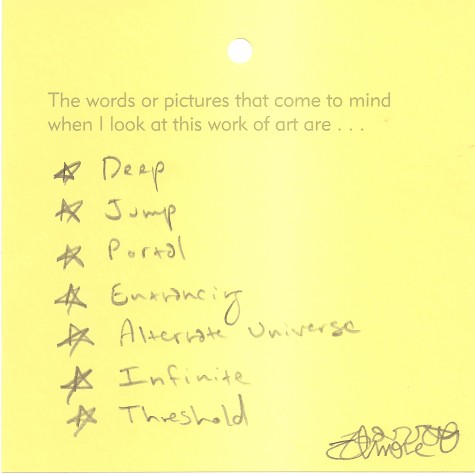 The words or pictures that come to mind
when I look at this work of art are . . .
Deep
Jump
Portal
Entrancing
Alternate Universe
Infinite
Threshold